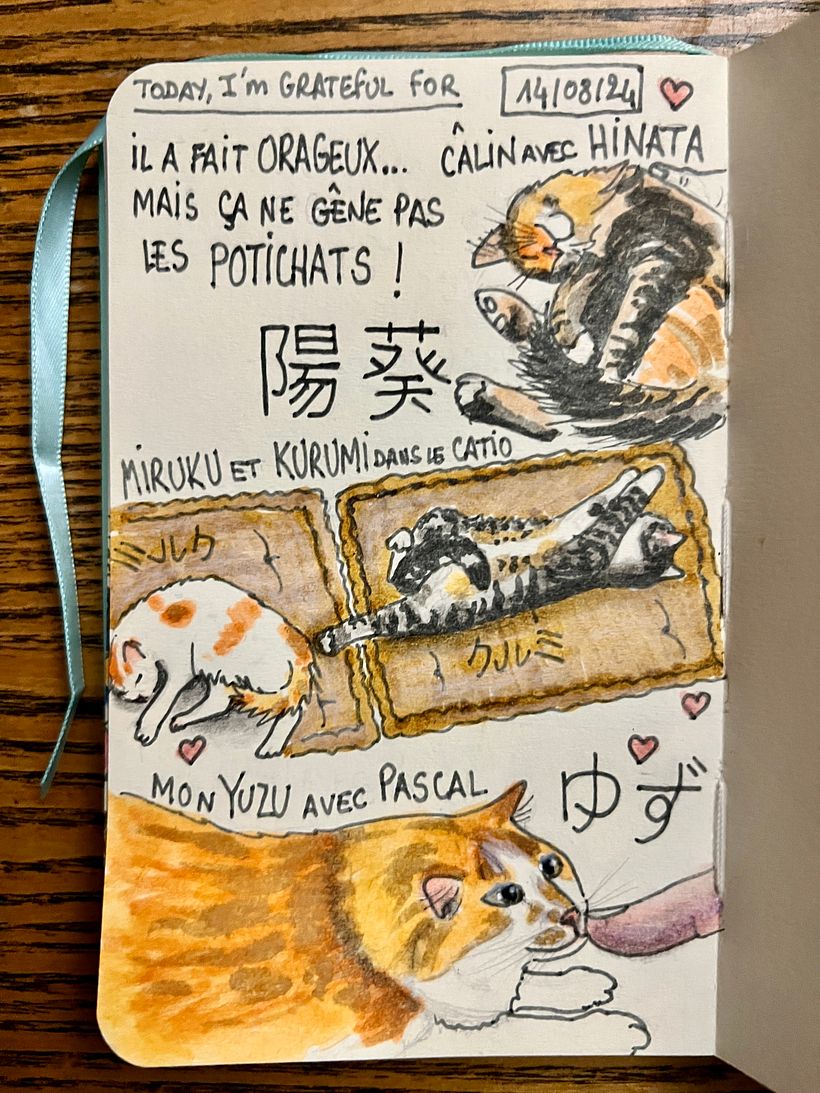 TODAY, I'm GRATEFUL FOR
14/08/24
iL A FAIT ORAGEUX...
MAiS ÇA NE GÊNE PAS
LES POTiCHATS !
CÂLiN AVEC HiNATA
陽葵
MiRUKU ET KURUMi DANS LE CATiO
ミルク
クルミ
MON YUZU AVEC PASCAL
ゆず